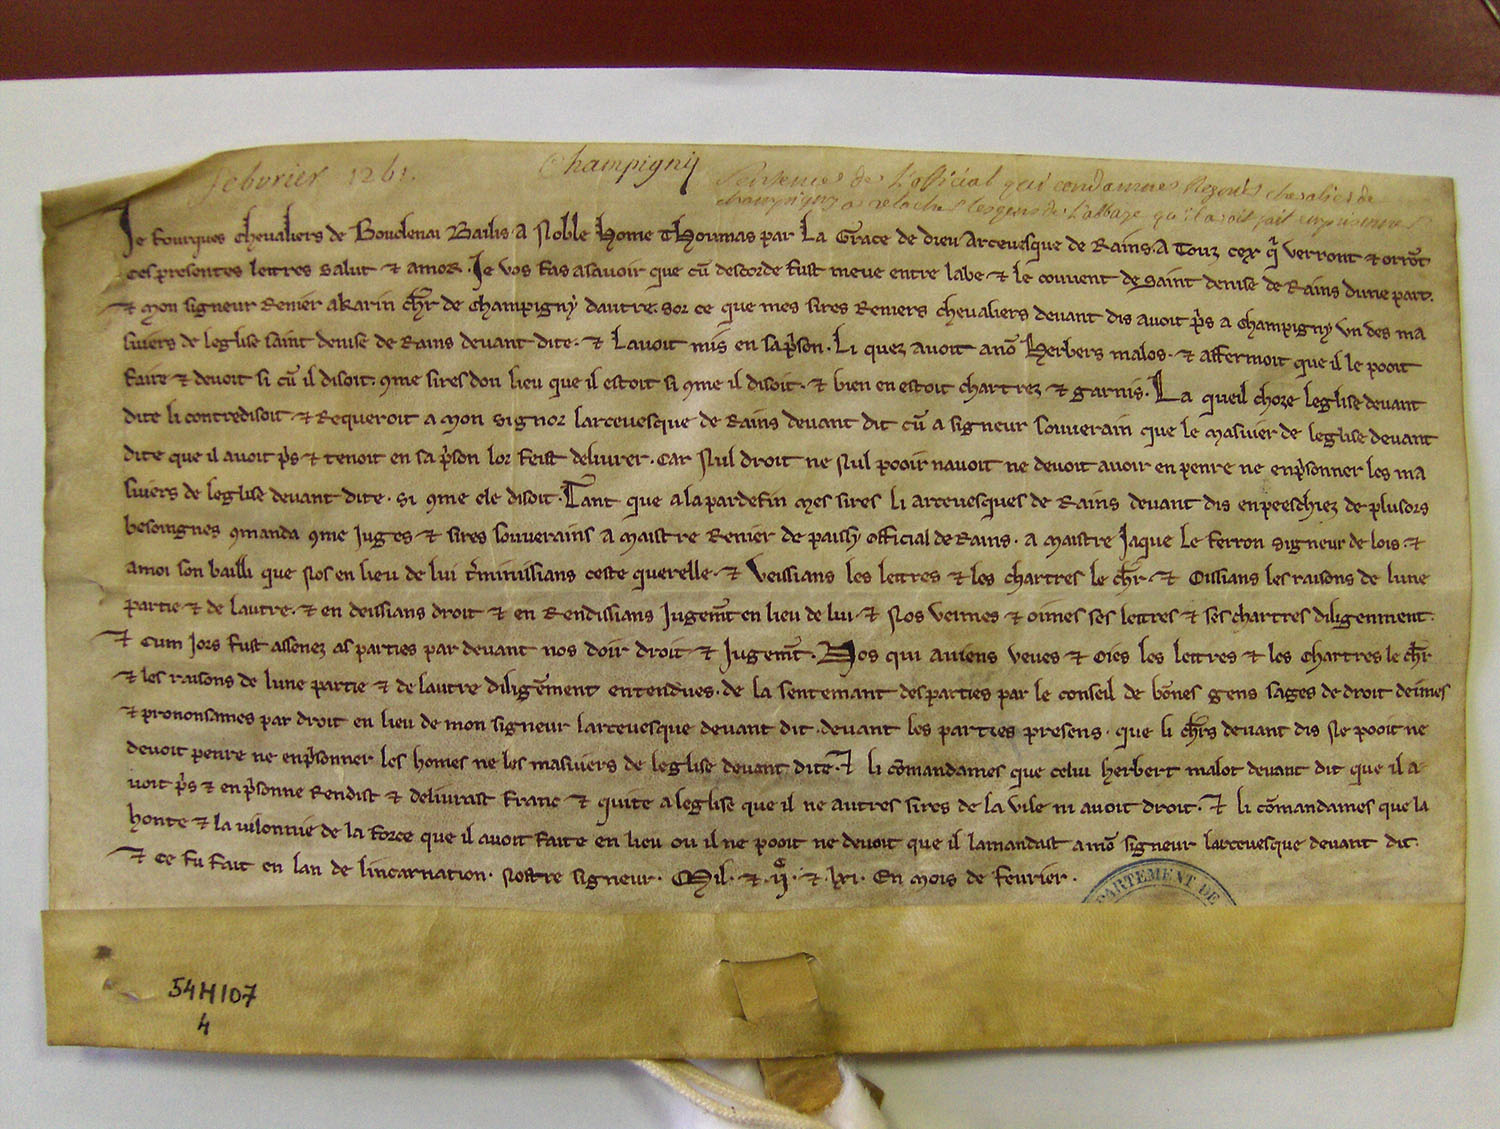 febvrier 1261.
Champigny
Sentence de l'official qui condamne Regnier chevalier de
champigny a relacher les gens de l'abbaye qu'il avoit fait emprisonner
Je fourques chevaliers de Bouclenai Bailis A Noble Home Thoumas par La Grace de dieu Arcevesque de Rains. A Touz cex q̃ verront & orrõt
ces presentes lettres salut & amor. Je vos fas asavoir que cũ descorde fust meue entre labe & le couvent de saint denise de Rains dune part.
& mon signeur Renier akarin ch̃r de champigny dautre. sor ce que mes sires Reniers chevaliers devant dis avoit p̃s a champigny un des ma
suiers de leglise saint denise de Rains devant dite. & Lavoit mis en sa p̃son. Li quez avoit anõ Herbers malos. & affermoit que il le pooit
faire & devoit si cũ il disoit. 9me sires don lieu que il estoit si 9me il disoit. & bien en estoit chartrez & garnis. La queil choze leglise devant
dite li contredisoit & Requeroit a mon signor larcevesque de Rains devant dit cũ a signeur souverain que le masuier de leglise devant
dite que il avoit p̃s & tenoit en sa p̃son lor feist delivrer. Car Nul droit ne Nul pooir navoit ne devoit avoir en penre ne enp̃sonner les ma
suiers de leglise devant dite. si 9me ele disoit. Tant que a la pardefin mes sires li arcevesques de Rains devant dis enpeeschiez de plusors
besoingnes 9manda 9me juges & sires souverains a maistre Renier de passy official de Rains. a maistre Jaque Le ferron signeur de lois &
amoi son bailli que Nos en lieu de lui t̃minissians ceste querelle. & veissians les lettres & les chartres le ch̃r. & oissians les raisons de lune
partie & de lautre. & en deissians droit & en Rendissians Jugem̃t en lieu de lui. & Nos veimes & oimes ses lettres & ses chartres diligenment.
& cum jors fust assenez as parties par devant nos doir droit & Jugem̃t. Nos qui aviens veues & oies les lettres & les chartres le ch̃r
& les raisons de lune partie & de lautre diligẽment entendues. de la sentemant des parties par le conseil de bõnes gens sages de droit deimes
& prononsames par droit en lieu de mon signeur larcevesque devant dit. devant les parties presens. que li ch̃rs devant dis Ne pooit ne
devoit penre ne enp̃sonner les homes ne les masuiers de leglise devant dite. & li cõmandames que celui herbert malot devant dit que il a
voit p̃s & enp̃sonne Rendist & delivrast franc & quite a leglise que il ne autres sires de la vile ni avoit droit. & li cõmandames que la
honte & la vilonnie de la force que il avoit faite en lieu ou il ne pooit ne devoit que il lamandast a mõ signeur larcevesque devant dit.
& ce fu fait en lan de lincarnation. Nostre signeur. Mil. & .ij. & .lxi. En mois de fevrier.
PARTEMENT DE
54H107
4